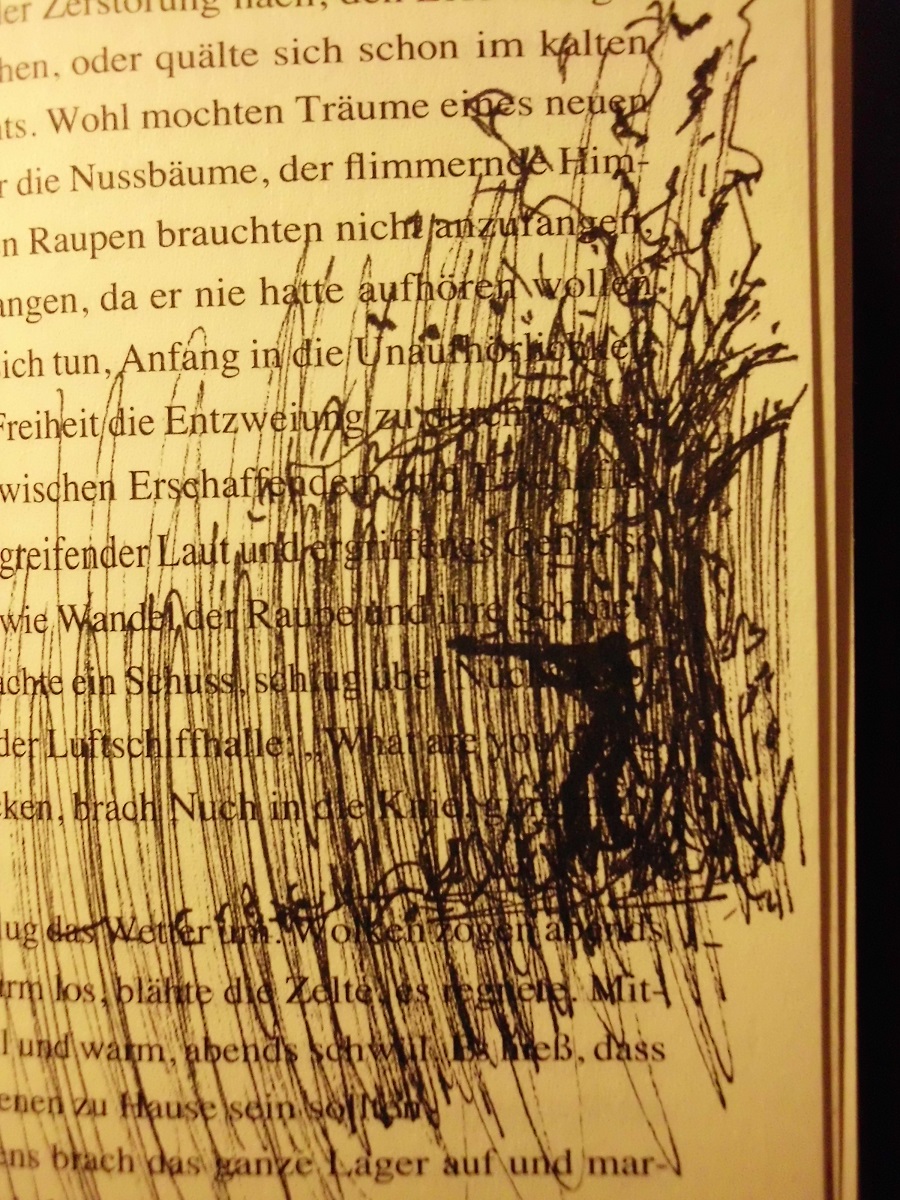 der Zerstörung nach, den
hen, oder quälte sich schon im kalten
ts. Wohl mochten Träume eines neuen
r die Nussbäume, der flimmernde Him-
n Raupen brauchten nicht anzufangen,
angen, da er nie hatte aufhören wollen.
sich tun, Anfang in die Unaufhörlichkeit
Freiheit die Entzweiung zu
wischen Erschaffendem und
greifender Laut und ergriffenes Gehör so
wie Wandel der Raupe und ihre
achte ein Schuss, schlug über
der Luftschiffhalle: „What are you
ken, brach Nuch in die Knie,
lug das Wetter um. Wolken zogen abends
rm los, blähte die Zelte, es regnete. Mit-
l und warm, abends schwül. Es hieß, dass
enen zu Hause sein sollten.
ns brach das ganze Lager auf und mar-